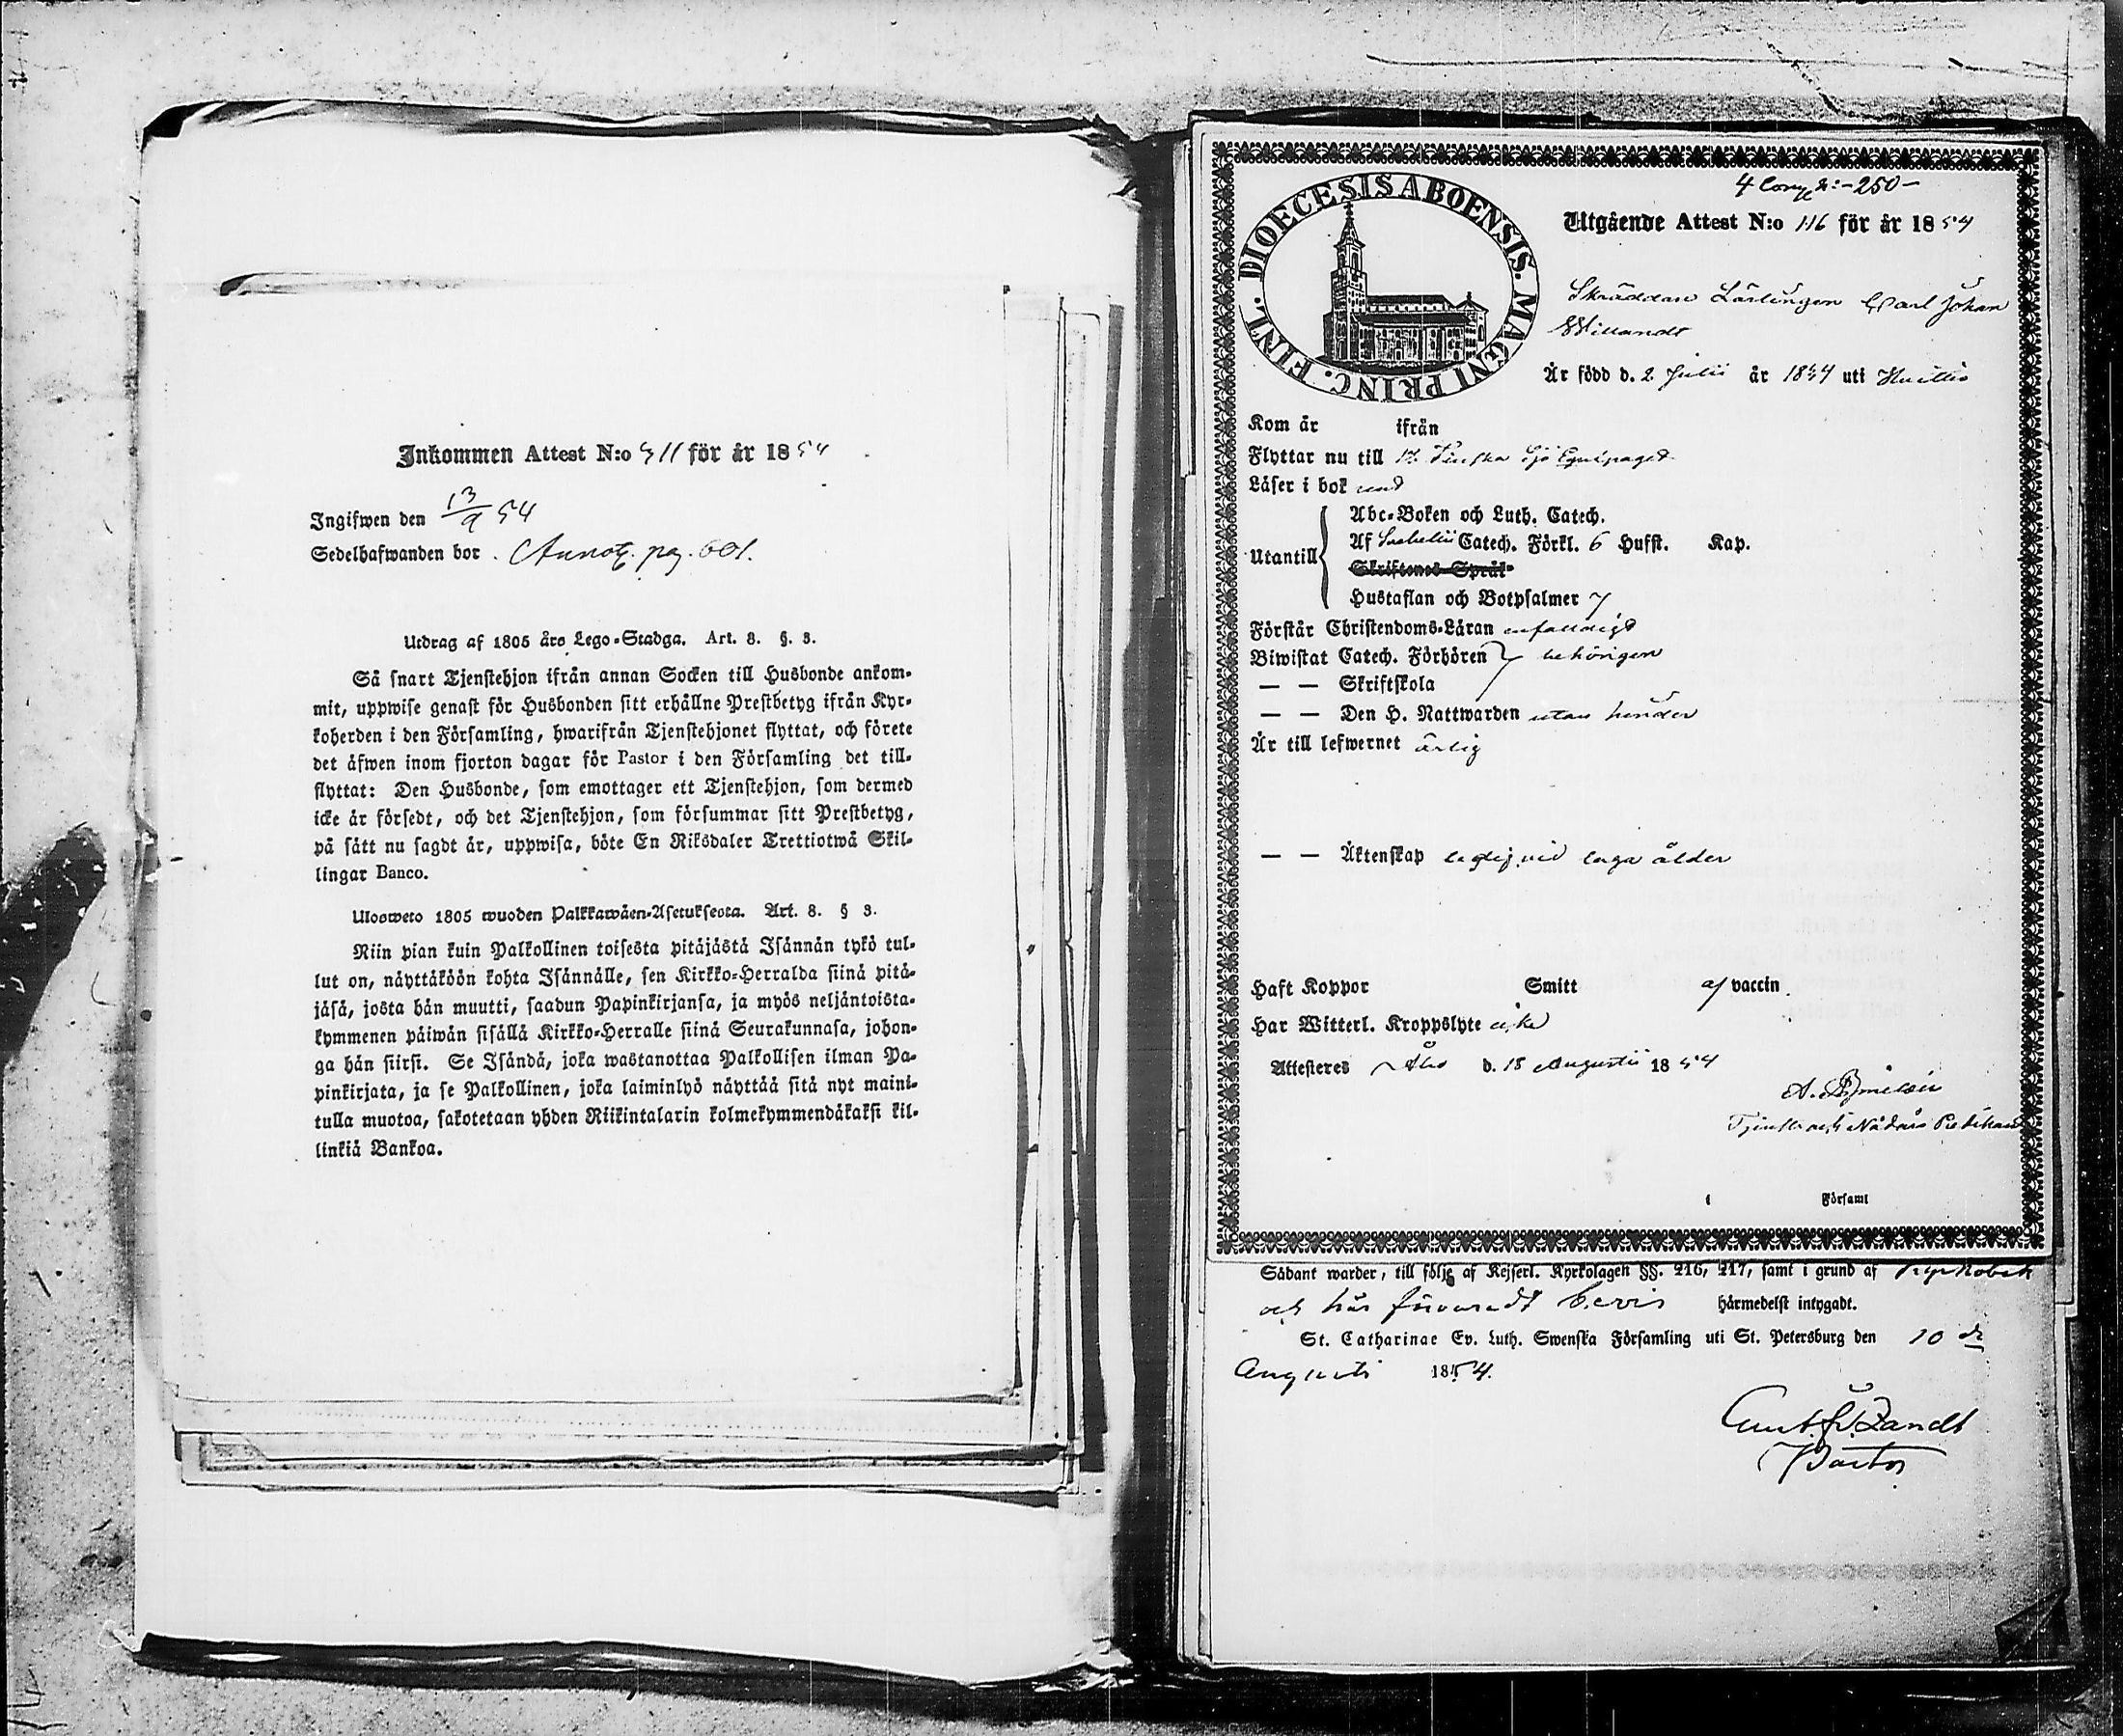 Inkommen Attest N:o 411 för år 1854
Ingifwen den 13/9 54
Sedelhafwanden bor . Annot. pag. 601.
Utdrag af 1805 års Lego-Stadga. Art. 8. §. 3.
Så snart Tjenstehjon ifrån annan Socken till Husbonde ankom-
mit, uppwise genast för Husbonden sitt erhållne Prestbetyg ifrån Kyr-
koherden i den Församling, hwarifrån Tjenstehjonet flyttat, och förete
det äfwen inom fjorton dagar för Pastor i den Församling det till-
flyttat: Den Husbonde, som emottager ett Tjenstehjon, som dermed
icke är försedt, och det Tjenstehjon, som försummar sitt Prestbetyg,
på sätt nu sagdt är, uppwisa, böte En Riksdaler Trettiotwå Skil-
lingar Banco.
Ulosweto 1805 wuoden Palkkawäen-Asetuksesta. Art. 8. § 3.
Niin pian kuin Palkollinen toisesta pitäjästä Isännän tykö tul-
lut on, näyttäköön kohta Isännälle, sen Kirkko-Herralda siinä pitä-
jäsä, josta hän muutti, saadun Papinkirjansa, ja myös neljäntoista-
kymmenen päiwän sisällä Kirkko-Herralle siinä Seurakunnasa, johon-
ga hän siirsi. Se Isändä, joka wastanottaa Palkollisen ilman Pa-
pinkirjata, ja se Palkollinen, joka laiminlyö näyttää sitä nyt maini-
tulla muotoa, sakotetaan yhden Riikintalarin kolmekymmendäkaksi kil-
linkiä Bankoa.
DIOECESIS ABOENSIS. MAGNI PRINC. FINL.
250
Utgående Attest N:o 116 för år 1854
Skräddare Lärlingen Carl Johan
Willandt
Är född d. 2 Julii år 1834 uti Huittis
Kom år ifrån
Flyttar nu till 1:a Finska Sjö Equipaget
Läser i bok
Utantill
Abc-Boken och Luth. Catech.
Af Svebelii Catech. Förkl. 6 Hufst. Kap.
Skriftenes Språk
Hustaflan och Botpsalmer 7
Förstår Christendoms-Läran enfaldigt
Biwistat Catech. Förhören behörigen
— — Skriftskola
— — Den H. Nattwarden utan hinder
Är till lefwernet ärlig
— — Äktenskap ledig, vid laga ålder
Haft Koppor Smitt af vaccin
Har Witterl. Kroppslyte icke
Attesteres Åbo d. 18 Augustii 1854
A.
i Församl
Sådant warder, till följe af Kejserl. Kyrkolagen §§. 216, 217, samt i grund af Kyrkobok
och här förvaradt bevis härmedelst intygadt.
St. Catharinae Ev. Luth. Swenska Församling uti St. Petersburg den 10 de
Augusti 1854.
Gust. Fr. Zandt
Pastor